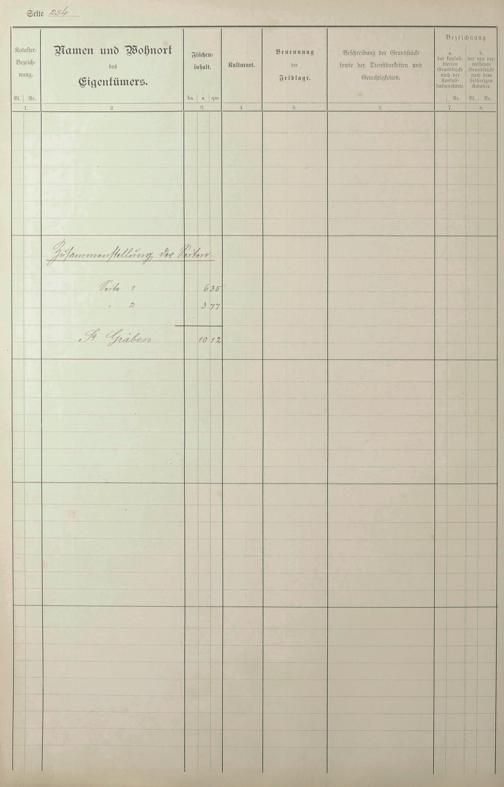 Seite 254
Kataster-
Bezeich-
nung.
Bl. Nr.
Namen und Wohnort
des
Eigentümers.
Flächen-
inhalt.
ha a qm
Kulturart.
Benennung
der
Feldlage.
Beschreibung der Grundstücke
sowie der Dienstbarkeiten und
Gerechtigkeiten.
Bezeichnung
a.
der konsoli-
dierten
Grundstücke
nach der
b.
Grundstücke
nach dem
Nr. Bl. Nr.
1. 2. 3. 4. 5. 6. 7. 8.
Zusammenstellung der Seiten.
Seite 1 6 35
" 2 3 77
Gräben 10 12